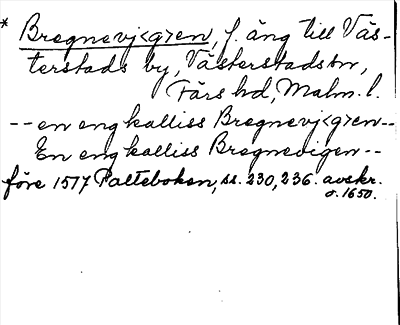 * Bregnevj<gren, f. äng till Väs-
terstads by, Västerstadstn,
Färs hd, Malm. l.
-- en eng kalliss Bregnevj<gren --
En eng kalliss Bregnevigen --
före 1577 Palteboken, ss. 230, 236. avskr.
o. 1650.